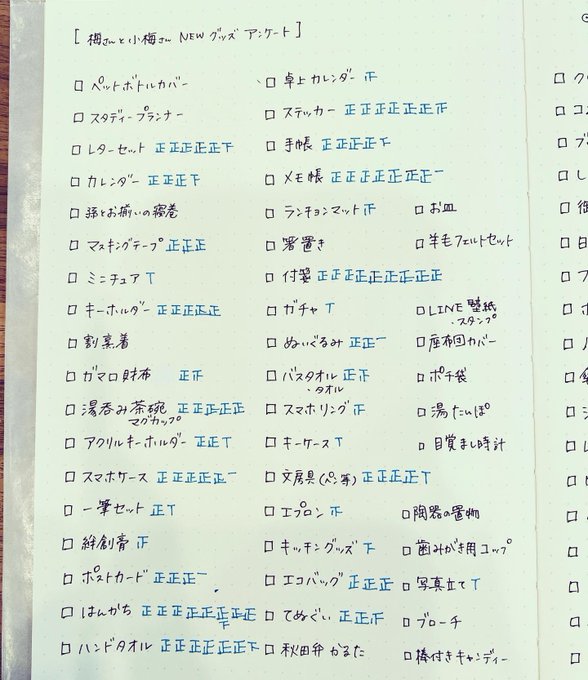 [ 梅さんと小梅さん NEW グッズ アンケート ]
□ ペットボトルカバー
□ スタディープランナー
□ レターセット 正正正正正下
□ カレンダー 正正正下
□ 孫とお揃いの寝巻
□ マスキングテープ 正正正
□ ミニチュア T
□ キーホルダー 正正正正正
□ 割烹着
□ ガマロ財布 正正
□ 湯呑み茶碗 正正正正正
マグカップ
□ アクリルキーホルダー 正正T
□ スマホケース 正正正正正一
□ 一筆セット 正T
□ 絆創膏 正
□ ポストカード 正正正一
□ はんかち 正正正正正正正正
□ ハンドタオル 正正正正正正下
□ 卓上カレンダー 正
□ ステッカー 正正正正正正正
□ 手帳 正正正正下
□ メモ帳 正正正正正正一
□ ランチョンマット 正
□ 箸置き
□ 付箋 正正正正正正正正
□ ガチャ T
□ ぬいぐるみ 正正一
□ バスタオル 正正
・タオル
□ スマホリング 正
□ キーケース T
□ 文房具(ペン等) 正正正正T
□ エプロン 正
□ キッチングッズ 下
□ エコバッグ 正正正
□ てぬぐい 正正正
□ 秋田弁かるた
□ お皿
□ 羊毛フェルトセット
□ LINE壁紙
・スタンプ
□ 座布団カバー
□ ポチ袋
□ 湯たんぽ
□ 目覚まし時計
□ 陶器の置物
□ 歯みがき用コップ
□ 写真立て T
□ ブローチ
□ 棒付きキャンディー